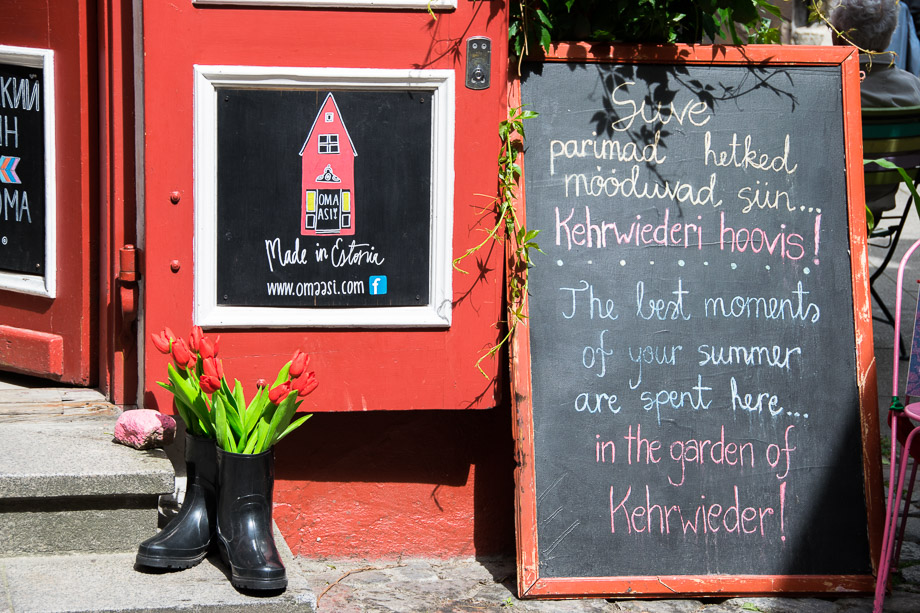 СКИЙ
ЙН
OMA
OMA
ASI
Made in Estonia
www.omaasi.com f
Suve
parimad hetked
mööduvad siin...
Kehrwiederi hoovis!
The best moments
of your summer
are spent here...
in the garden of
Kehrwieder!